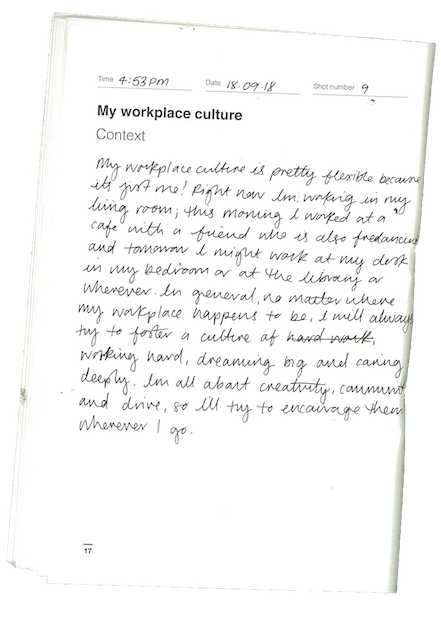 Time 4:53PM Date 18.09.18 Shot number 9
My workplace culture
Context
My workplace culture is pretty flexible because
it's just me! Right now I'm working in my
living room; this morning I worked at a
cafe with a friend who is also freelancing
and tomorrow I might work at my desk
in my bedroom or at the library or
wherever. In general, no matter where
my workplace happens to be, I will always
try to foster a culture of hard work,
working hard, dreaming big and caring
deeply. I'm all about creativity,
and drive, so I'll try to encourage them
wherever I go.
17